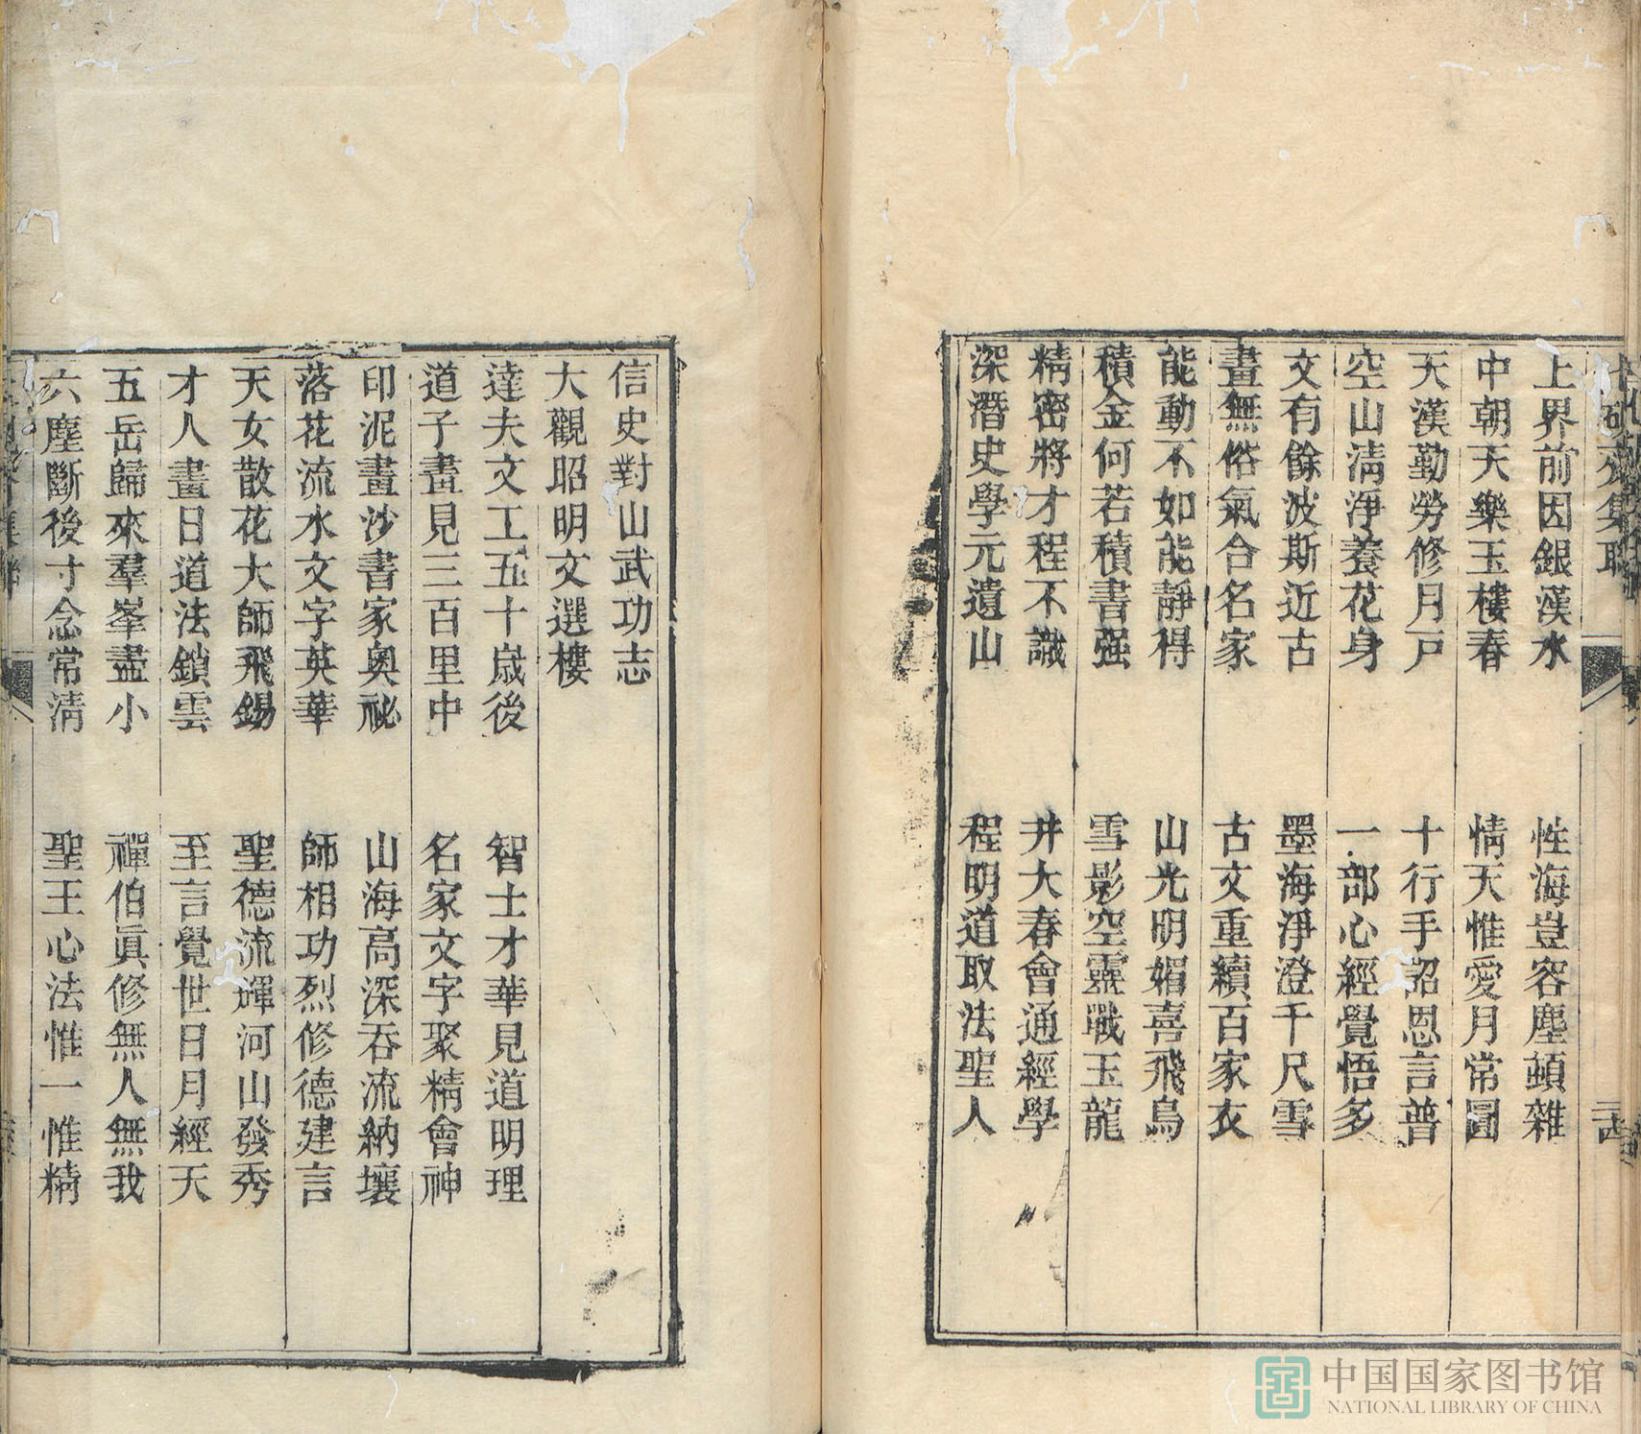 上界前因銀漢水　性海豈容塵頓雜
中朝天樂玉樓春　情天惟愛月常圓
天漢勤勞修月戸　十行手詔恩言普
空山清淨養花身　一部心經覺悟多
文有餘波斯近古　墨海淨澄千尺雪
畫無俗氣合名家　古文重續百家衣
能動不如能靜得　山光明媚喜飛鳥
積金何若積書强　雪影空靈戰玉龍
精密將才程不識　井大春會通經學
深潛史學元遺山　程明道取法聖人
信史對山武功志
大觀昭明文選樓
達夫文工五十嵗後　智士才華見道明理
道子畫見三百里中　名家文字聚精會神
印泥畫沙書家奧祕　山海高深吞流納壤
落花流水文字英華　師相功烈修德建言
天女散花大師飛錫　聖德流輝河山發秀
才人畫日道法鎖雲　至言覺世日月經天
五岳歸來羣峯盡小　禪伯眞修無人無我
六塵斷後寸念常清　聖王心法惟一惟精
中国国家图书馆
NATIONAL LIBRARY OF CHINA